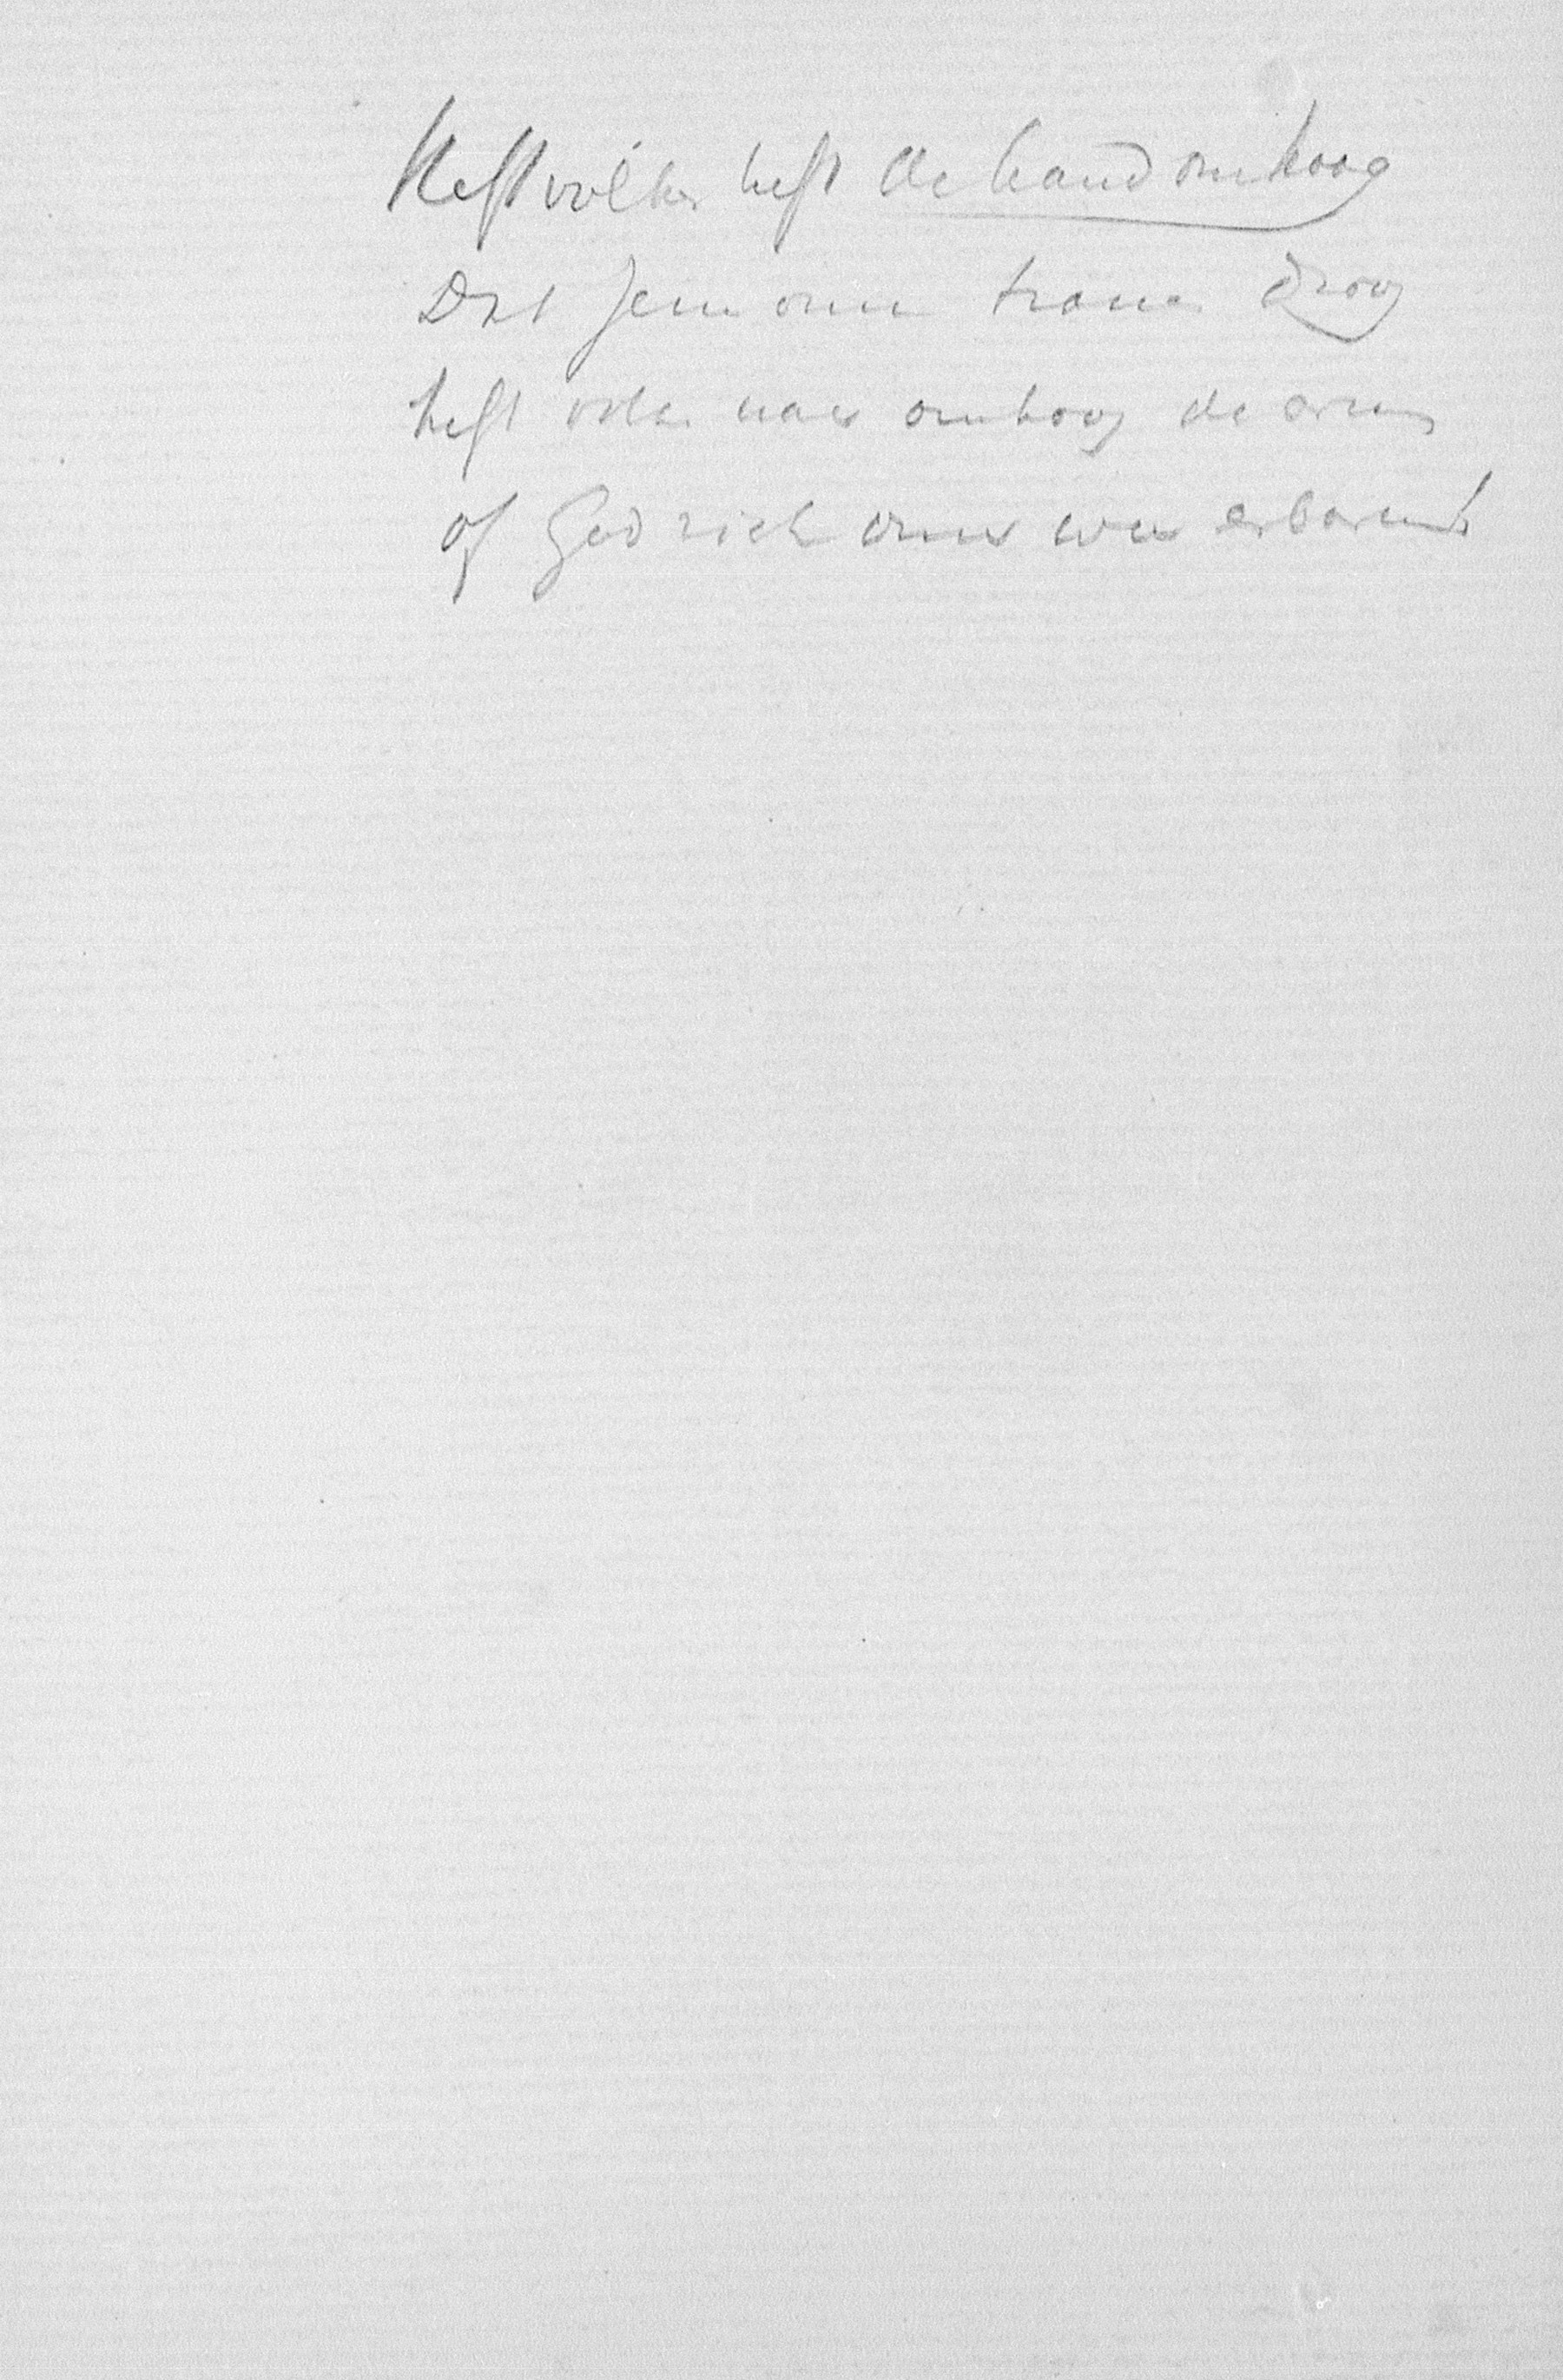 Heft volken heft de hand omhoog
Dat Jezus onze tranen droog
heft volken naar omhoog de armen
of God zich onzer wou erbarmen